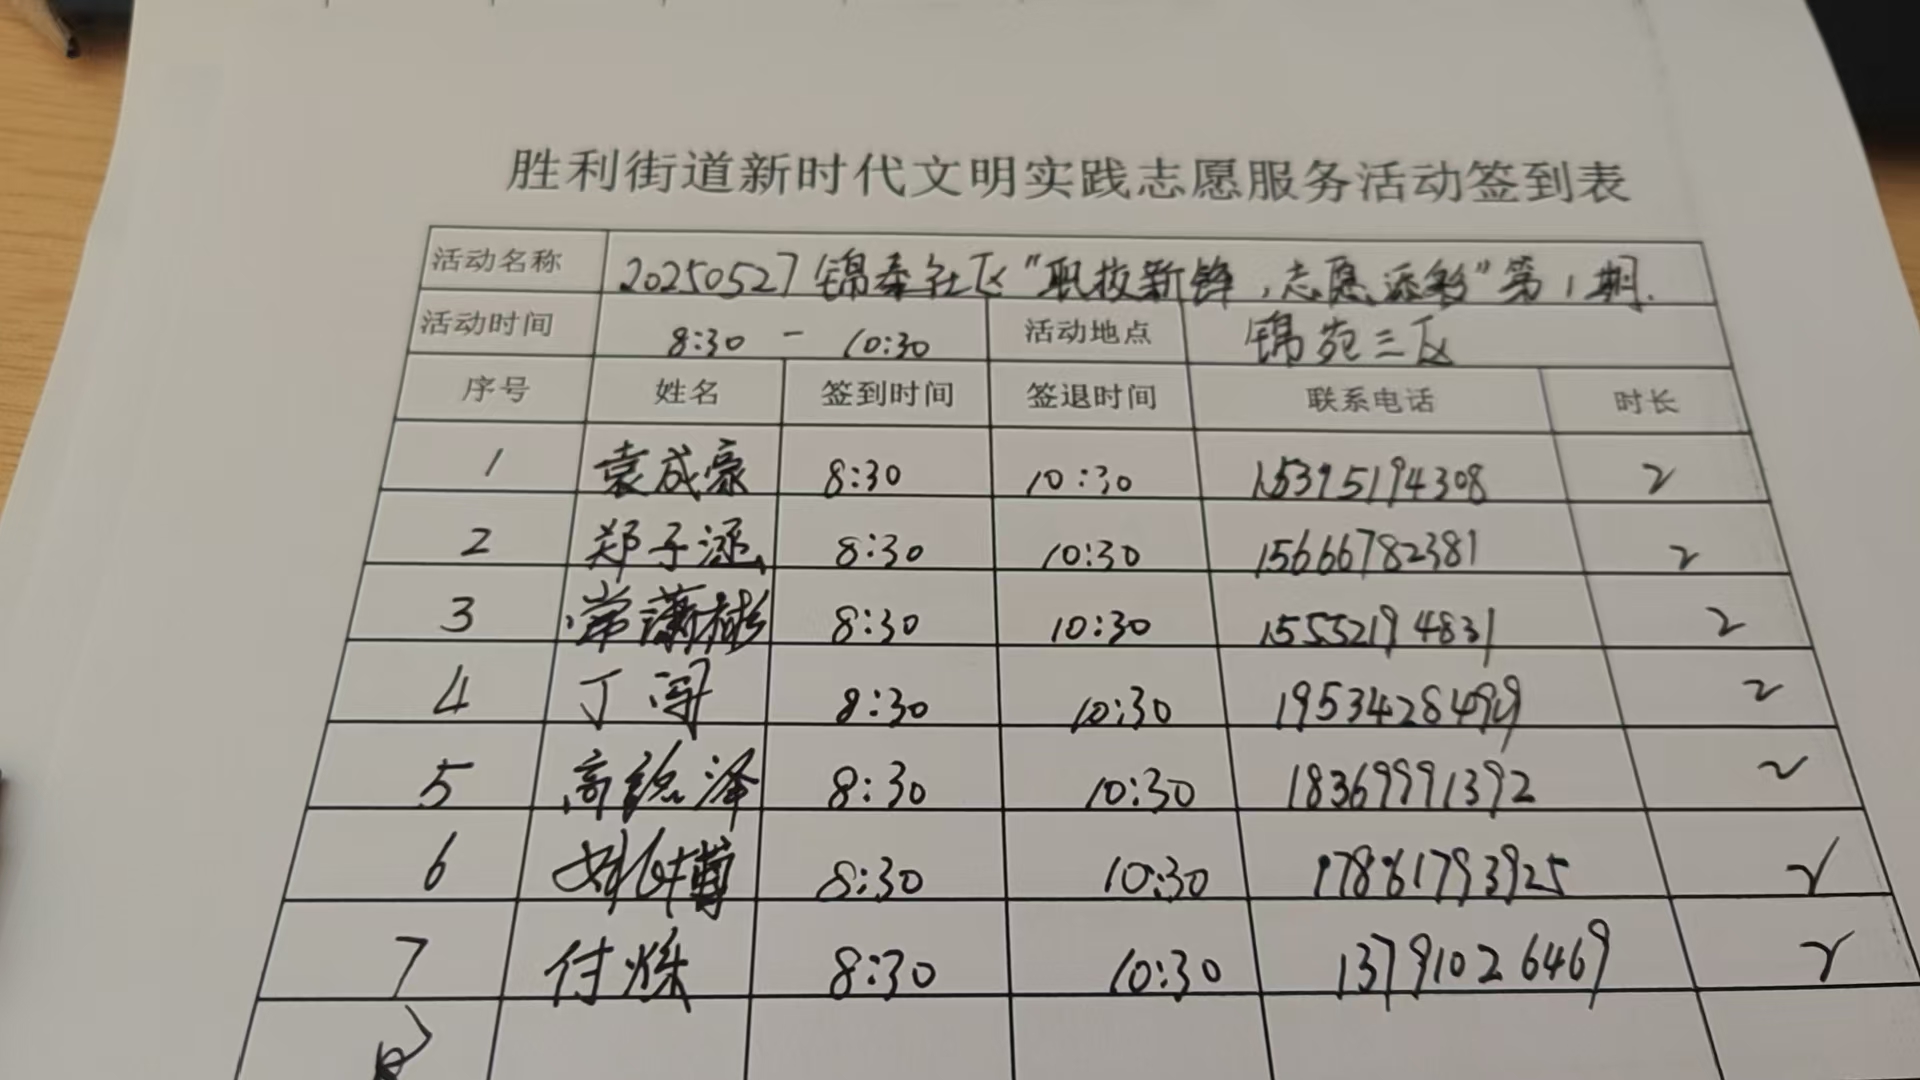 胜利街道新时代文明实践志愿服务活动签到表
活动名称 20250527锦泰社区"职技新锋,志愿添彩"第1期.
活动时间 8:30 - 10:30 活动地点 锦苑三区
序号 姓名 签到时间 签退时间 联系电话 时长
1 袁成豪 8:30 10:30 15395194308 2
2 郑子涵 8:30 10:30 15666782381 2
3 常潇彬 8:30 10:30 15552194831 2
4 丁闯 8:30 10:30 1953428499 2
5 高 泽 8:30 10:30 18369991392 2
6 刘 博 8:30 10:30 17861793925 2
7 付烁 8:30 10:30 13791026469 2